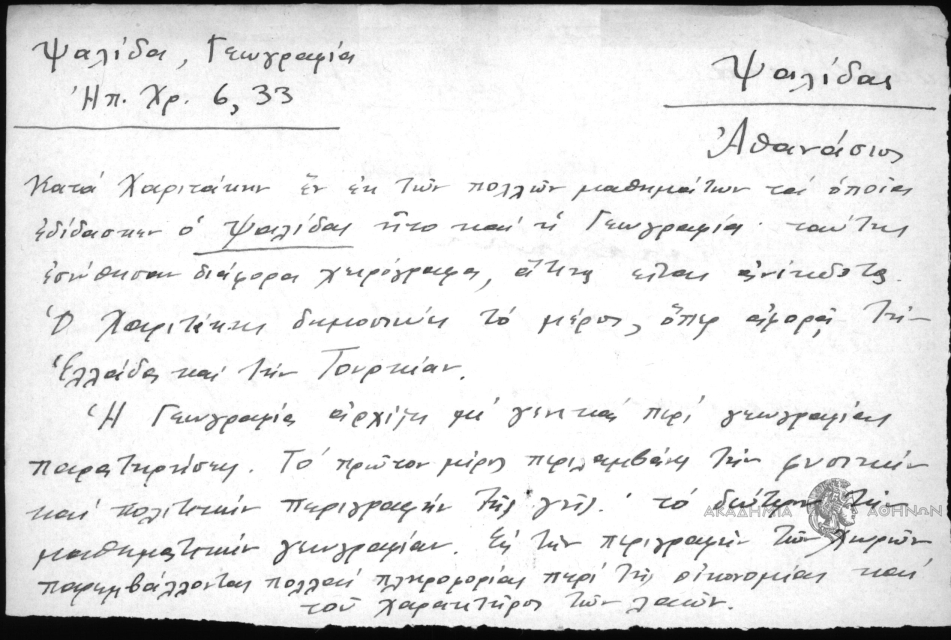 Ψαλίδα, Γεωγραφία
Ἠπ. Χρ. 6, 33
Ψαλίδας
Ἀθανάσιος
Κατά Χαριτάκην ἕν ἐκ τῶν πολλῶν μαθημάτων τά ὁποῖα
ἐδίδασκεν ὁ Ψαλίδας ἦτο καί ἡ Γεωγραφία· ταύτης
ἐσώθησαν διάφορα χειρόγραφα, ἅτινα εἶναι ἀνέκδοτα.
Ὁ Χαριτάκης δημοσιεύει τό μέρος, ὅπερ ἀφορᾷ τήν
Ἑλλάδα καί τήν Τουρκίαν.
Ἡ Γεωγραφία ἀρχίζει μέ γενικάς περί γεωγραφίας
παρατηρήσεις. Τό πρῶτον μέρος περιλαμβάνει τήν φυσικήν
καί πολιτικήν περιγραφήν τῆς γῆς· τό δεύτερον τήν
ΑΚΑΔΗΜΙΑ ΑΘΗΝΩΝ
μαθηματικήν γεωγραφίαν. Εἰς τήν περιγραφήν τῶν χωρῶν
παρεμβάλλονται πολλαί πληροφορίαι περί τῆς οἰκονομίας καί
τοῦ χαρακτῆρος τῶν λαῶν.